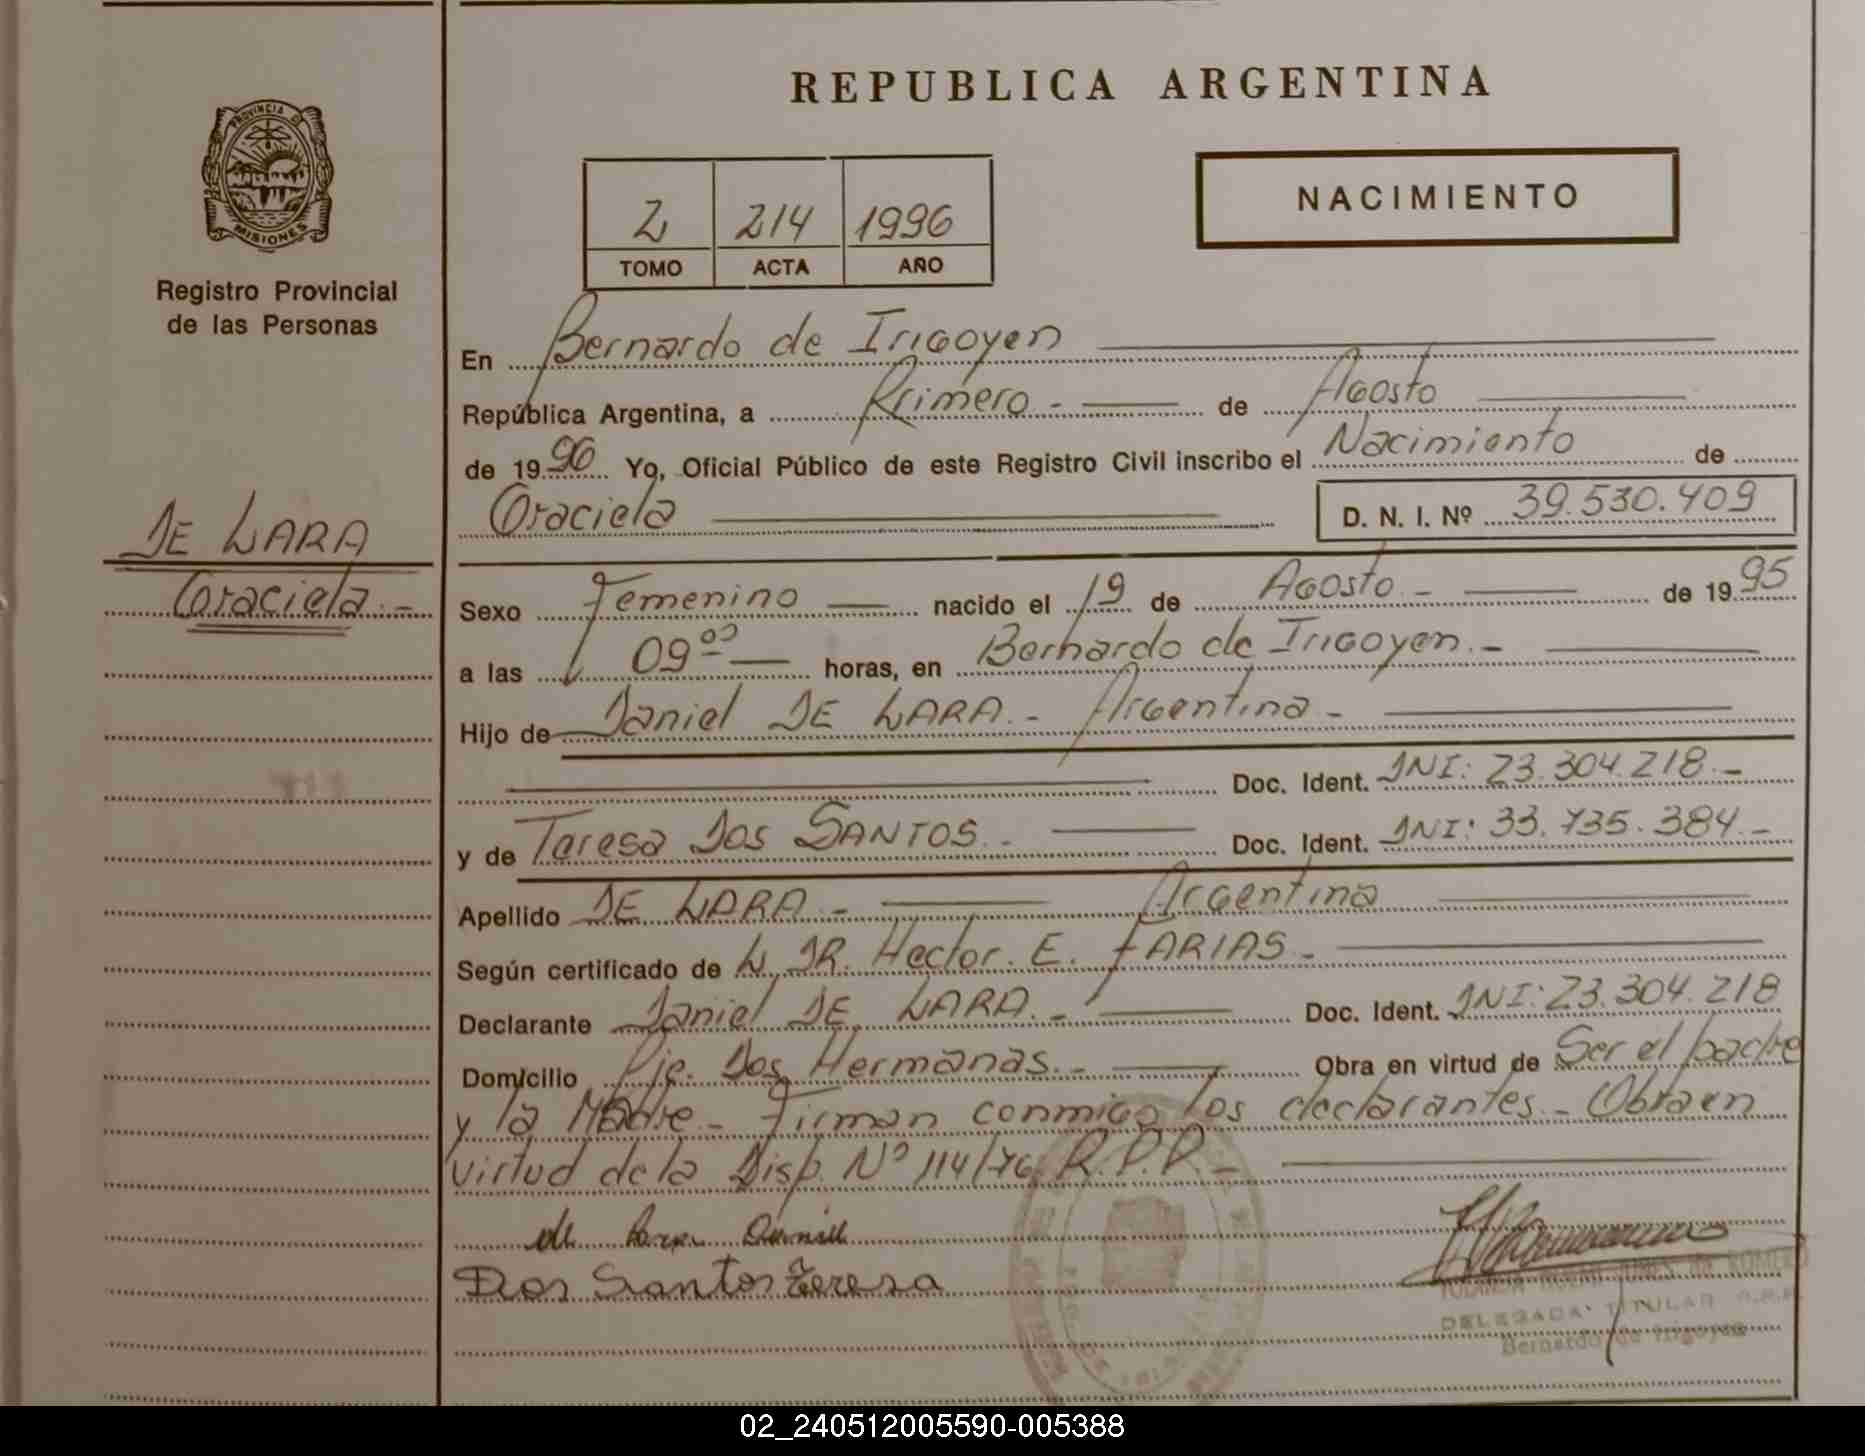 REPUBLICA ARGENTINA
PROVINCIA DE
MISIONES
Registro Provincial
de las Personas
2 214 1996
TOMO ACTA AÑO
NACIMIENTO
En Bernardo de Irigoyen
República Argentina, a Primero - de Agosto
de 1996 Yo, Oficial Público de este Registro Civil inscribo el Nacimiento de
Graciela D. N. I. Nº 39.530.409
DE LARA
Graciela.-
Sexo Femenino nacido el 19 de Agosto.- de 1995
a las 09⁰⁰ horas, en Bernardo de Irigoyen.-
Hijo de Daniel DE LARA.- Argentina-
Doc. Ident. DNI: 23.304.218.-
y de Teresa DOS SANTOS.- Doc. Ident. DNI: 33.735.384.-
Apellido DE LARA.- Argentina
Según certificado de L. DR. Hector. E. FARIAS-
Declarante Daniel DE LARA.- Doc. Ident. DNI: 23.304.218
Domicilio Pje. Dos Hermanas.- Obra en virtud de Ser el padre
y la Madre.- Firman conmigo los declarantes.- Obra en
virtud de la Disp. Nº 114/76. R.P.P.-
de Lara Daniel
Dos Santos Teresa
ROMERO
DELEGADA TITULAR R.P.P.
Bernardo de Irigoyen
02_240512005590-005388